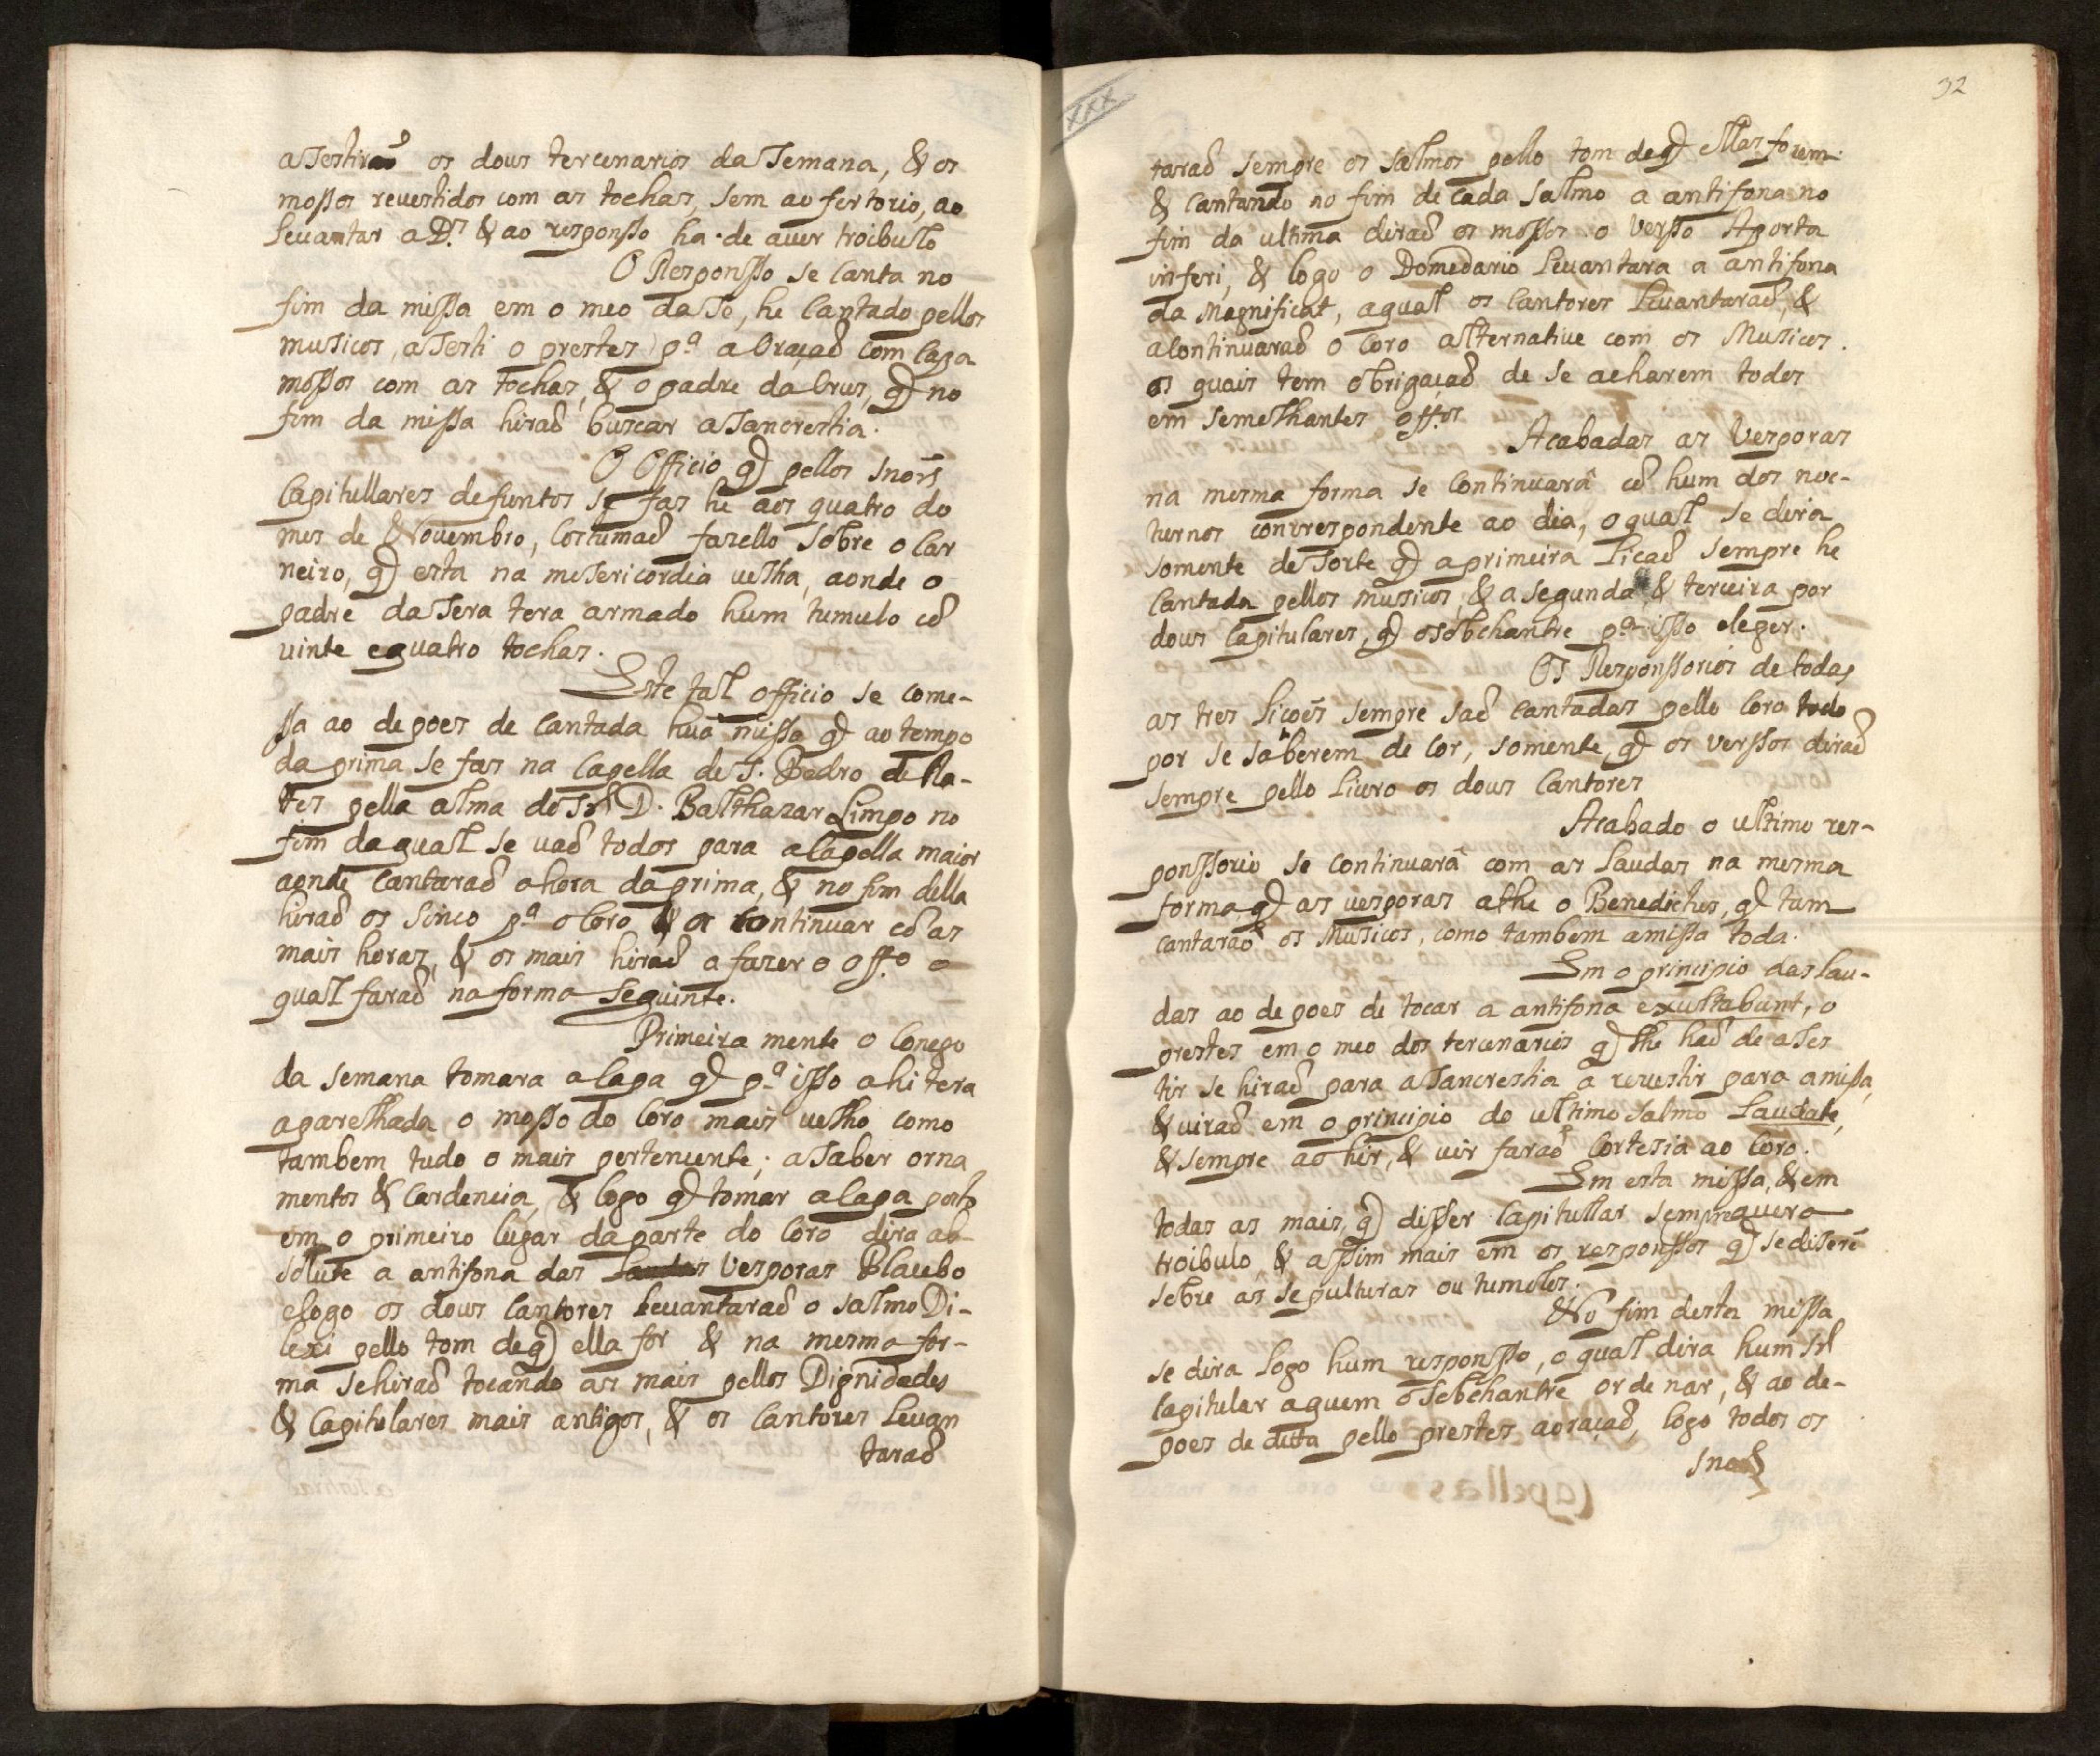 aSestiraõ os dous tercenarios da Semana, & os
mossos reuestidos com as tochas, sem ao fertorio, ao
leuantar a D.s & ao responsso ha de auer troibullo
O Responsso se Canta no
fim da missa em o meo da Se, he Cantado pellos
musicos, aSesti o prestes p.a a Oraçaõ com Capa
mossos com as tochas, & o padre da Crus, q̃ no
fim da missa hiraõ buscar aSancrestia.
O Officio q̃ pellos snõrs
Capitullares defuntos se fas he aos quatro do
mes de Nouembro, Costumaõ fazello sobre o Car
neiro, q̃ esta na meSericordia uelha, aonde o
padre da Sera tera armado hum tumulo cõ
uinte equatro tochas.
Este tal officio se come-
ssa ao depoes de Cantada huã missa q̃ ao tempo
da prima se fas na Capella de S. Pedro de Ra-
tes pella alma do Sr̃ D. Balthazar Limpo no
fim daqual se uaõ todos para aCapella maior
aonde Cantaraõ ahora da prima, & no fim della
hiraõ os sinco p.a o Coro & a Continuar cõ as
mais horas, & os mais hiraõ a fazer o off.o o
qual faraõ na forma seguinte.
Primeira mente o Conego
da semana tomara aCapa q̃ p.a isso ahi tera
aparelhada o mosso do Coro mais uelho como
tambem tudo o mais pertencente; aSaber orna
mentos & Cardencia, & logo q̃ tomar aCapa posto
em o primeiro lugar daparte do Coro dira ab-
solute a antifona das Laudas Vesporas Placebo
elogo os dous Cantores leuantaraõ o salmo Di-
lexi pello tom deq̃ ella for & na mesma for-
ma sehiraõ tocando as mais pellos Dignidades
& Capitulares mais antigos, & os Cantores leuan
taraõ
XXX
32
taraõ sempre os salmos pello tom deq̃ ellas forem
& Cantando no fim de Cada salmo a antifona no
fim da ultima diraõ os mossos o Versso Aporta
inferi, & logo o Domedario leuantara a antifona
da Magnificat, aqual os Cantores leuantaraõ, &
aContinuaraõ o Coro alternatiue com os Musicos.
os quais tem obrigaçaõ de se acharem todos
em semelhantes off.os
Acabadas as Vesporas
na mesma forma se Continuarâ cõ hum dos noc-
turnos conrrespondente ao dia, oqual se dira
somente deSorte q̃ aprimeira Liçaõ sempre he
Cantada pellos musicos, & a segunda & terceira por
dous Capitulares, q̃ osobchantre p.a isso eleger.
Os Responssorios de todas
as tres Liçoẽs sempre saõ cantadas pello Coro todo
por se saberem de Cor, somente, q̃ os verssos diraõ
sempre pello Liuro os dous Cantores
Acabado o ultimo res-
ponssorio se continuarâ com as laudas na mesma
forma q̃ as uesporas athe o Benedictus, q̃ tam
cantaraõ os Musicos, como tambem amissa toda.
Em o principio das lau-
das ao depoes de tocar a antifona exultabunt, o
prestes em o meo dos tercenarios q̃ lhe haõ de aSes
tir se hiraõ para aSancrestia a reuestir para amissa,
& uiraõ em oprincipio do ultimo salmo Laudate,
& sempre ao hir, & uir faraõ Cortesia ao Coro.
Em esta missa, & em
todas as mais, q̃ disser Capitullar sempreauera
troibulo, & assim mais em os responssos q̃ sedisserẽ
sobre as sepulturas ou tumulos.
No fim desta missa
se dira logo hum responsso, o qual dira hum sr̃
Capitular aquem osobchantre ordenar, & ao de-
poes de ditta pello prestes aoraçaõ, logo todos os
snõrs